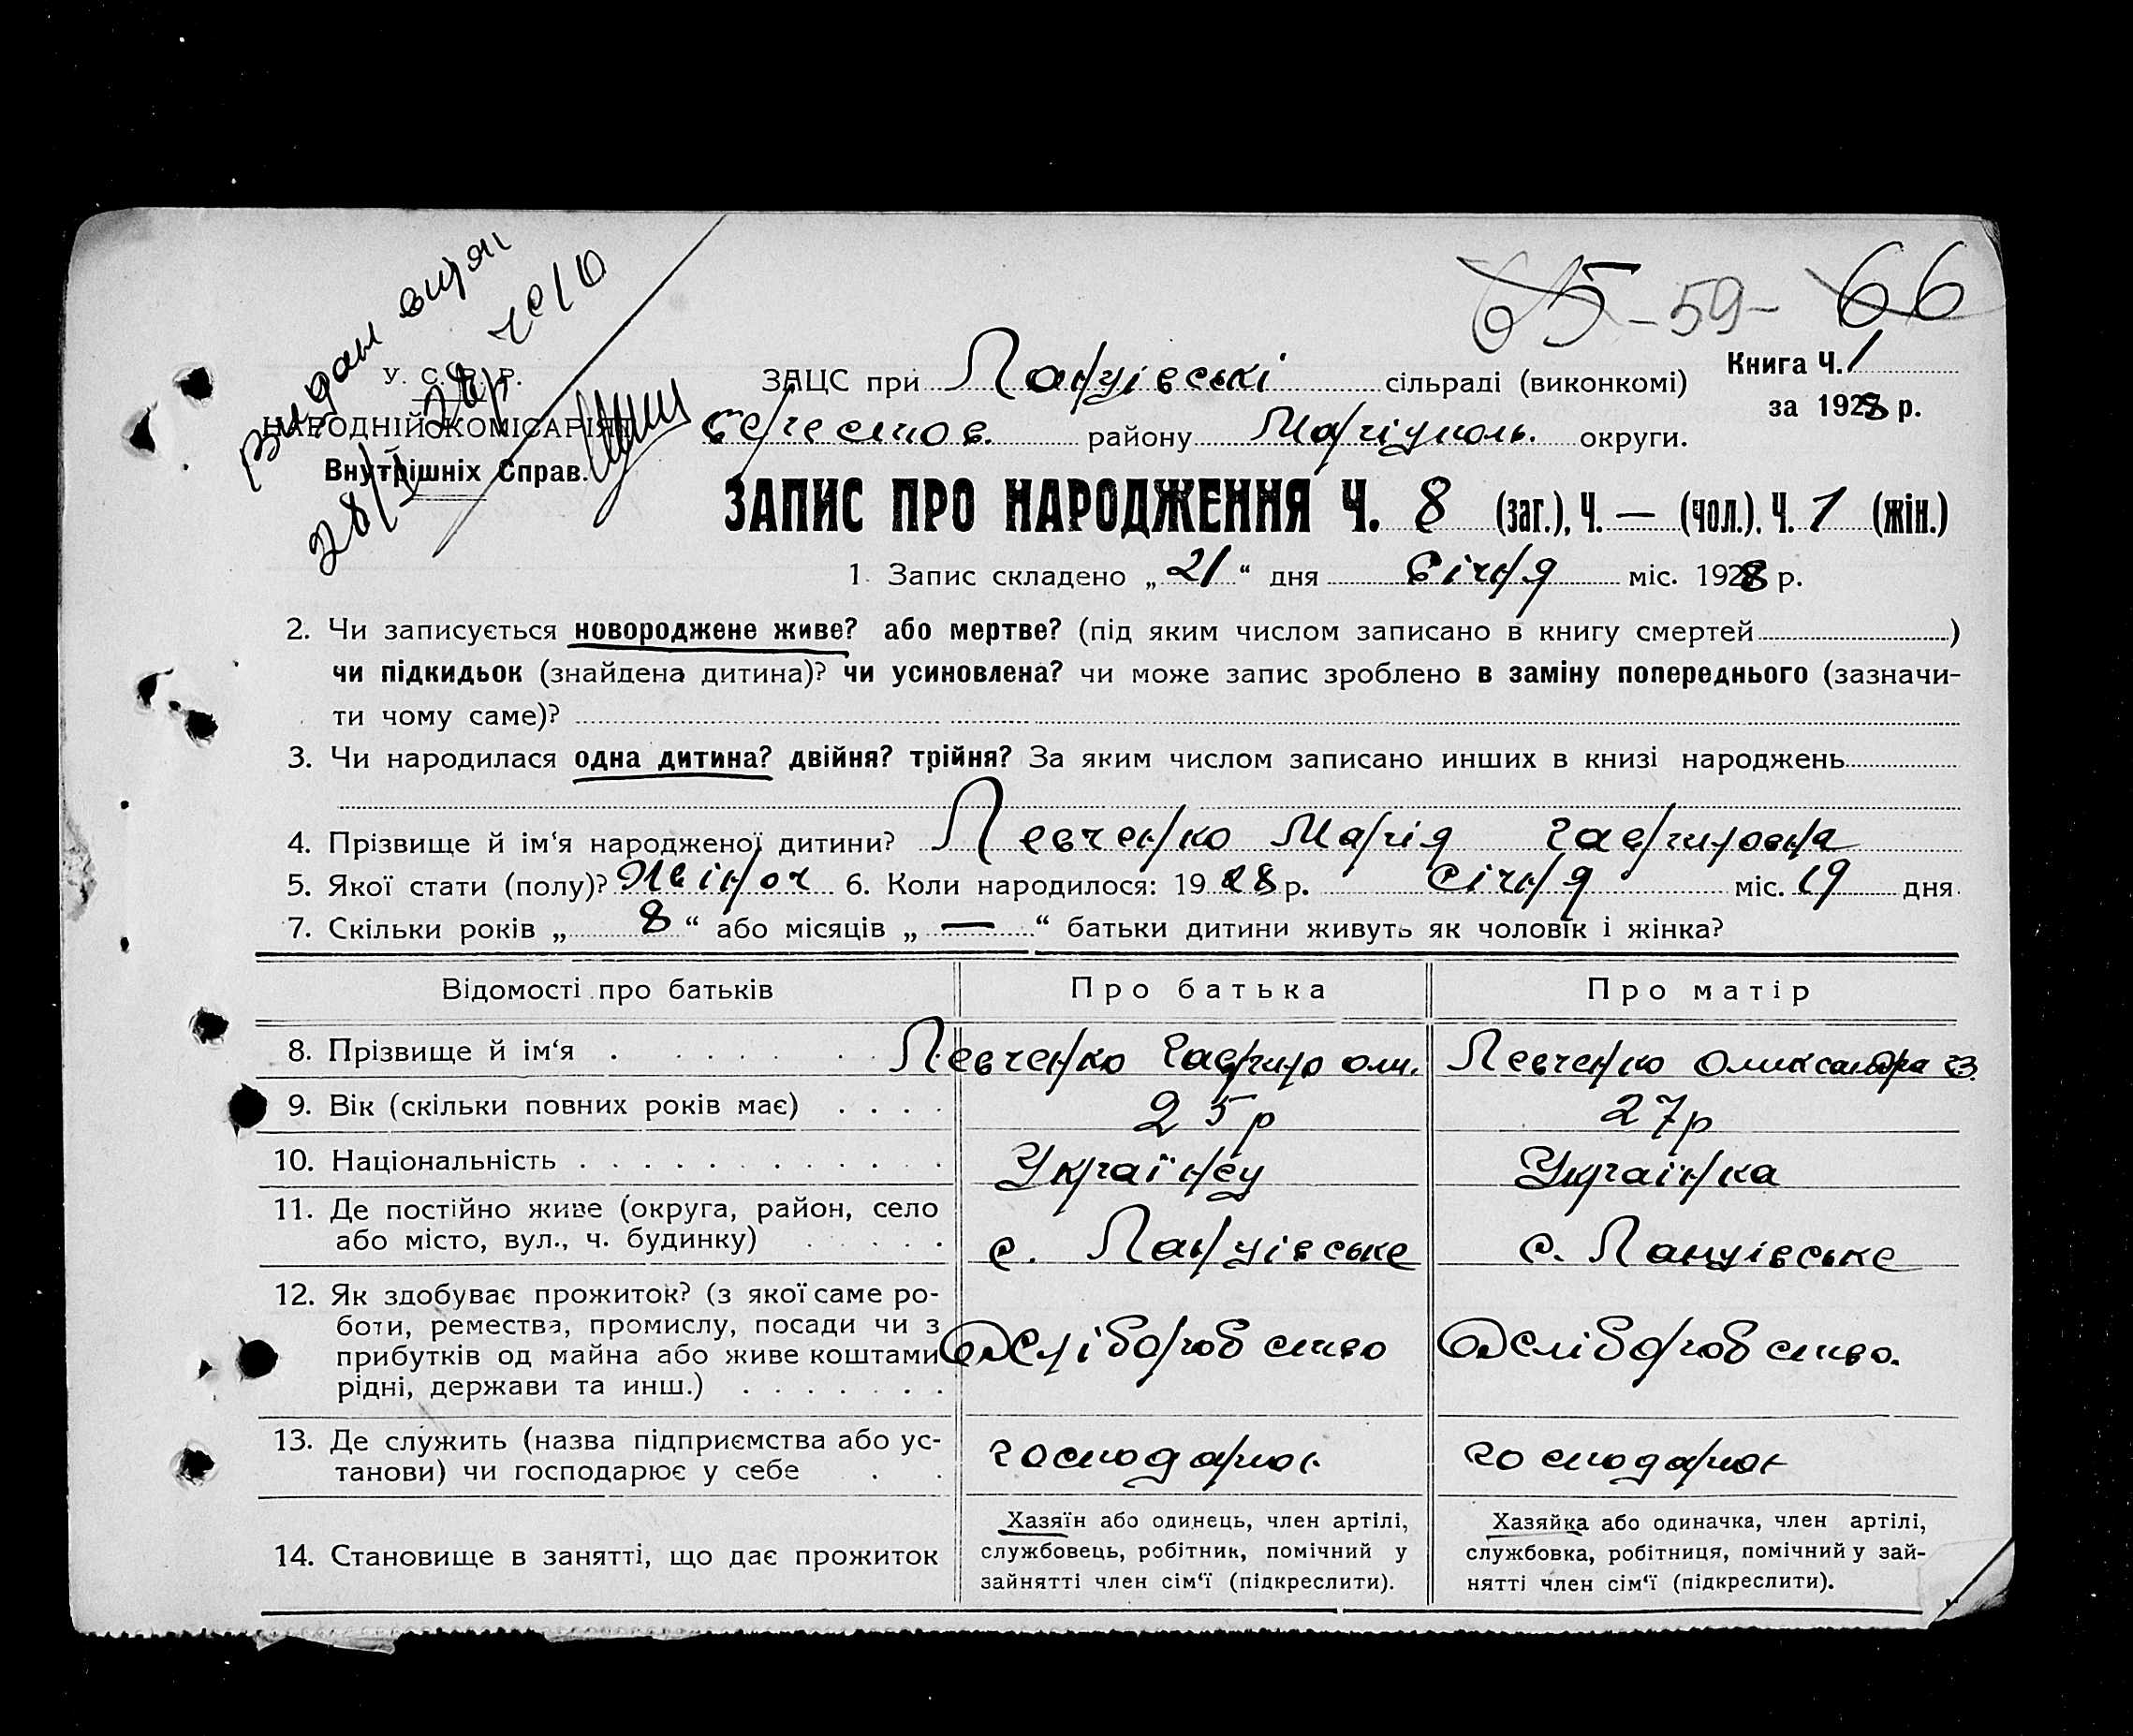 65 - 59 - 66
Видан витяг
У. С. Р. Р.
НАРОДНІЙ КОМІСАРІЯТ
Внутрішніх Справ.
ЗАЦС при Лануівські сільраді (виконкомі)
Книга Ч. 1
за 1928 р.
району Маріуполь. округи.
ЗАПИС ПРО НАРОДЖЕННЯ Ч. 8 (заг.), Ч. — (чол.), Ч. 1 (жін.)
1. Запис складено „ 21 “ дня Січня міс. 1928 р.
2. Чи записується новороджене живе? або мертве? (під яким числом записано в книгу смертей )
чи підкидьок (знайдена дитина)? чи усиновлена? чи може запис зроблено в заміну попереднього (зазначи-
ти чому саме)?
3. Чи народилася одна дитина? двійня? трійня? За яким числом записано инших в книзі народжень
4. Прізвище й ім‘я народженої дитини? Левченко Марія Гавриловна
5. Якої стати (полу)? Жіноч 6. Коли народилося: 1928 р. Січня міс. 19 дня
7. Скільки років „ 8 “ або місяців „ — “ батьки дитини живуть як чоловік і жінка?
Відомості про батьків Про батька Про матір
8. Прізвище й ім‘я Левченко Гаврило Ом. Левченко Олександра
9. Вік (скільки повних років має) 25 р 27 р
10. Національність Україно Українка
11. Де постійно живе (округа, район, село
або місто, вул., ч. будинку) с. Лануівське с. Лануівське
12. Як здобуває прожиток? (з якої саме ро-
боти, ремества, промислу, посади чи з
прибутків од майна або живе коштами хсліборобство хсліборобство.
рідні, держави та инш.)
13. Де служить (назва підприємства або ус-
танови) чи господарює у себе господарює господарює
14. Становище в занятті, що дає прожиток
Хазяїн або одинець, член артілі,
службовець, робітник, помічний у
зайнятті член сім‘ї (підкреслити).
Хазяйка або одиначка, член артілі,
службовка, робітниця, помічний у зай-
нятті член сім‘ї (підкреслити).